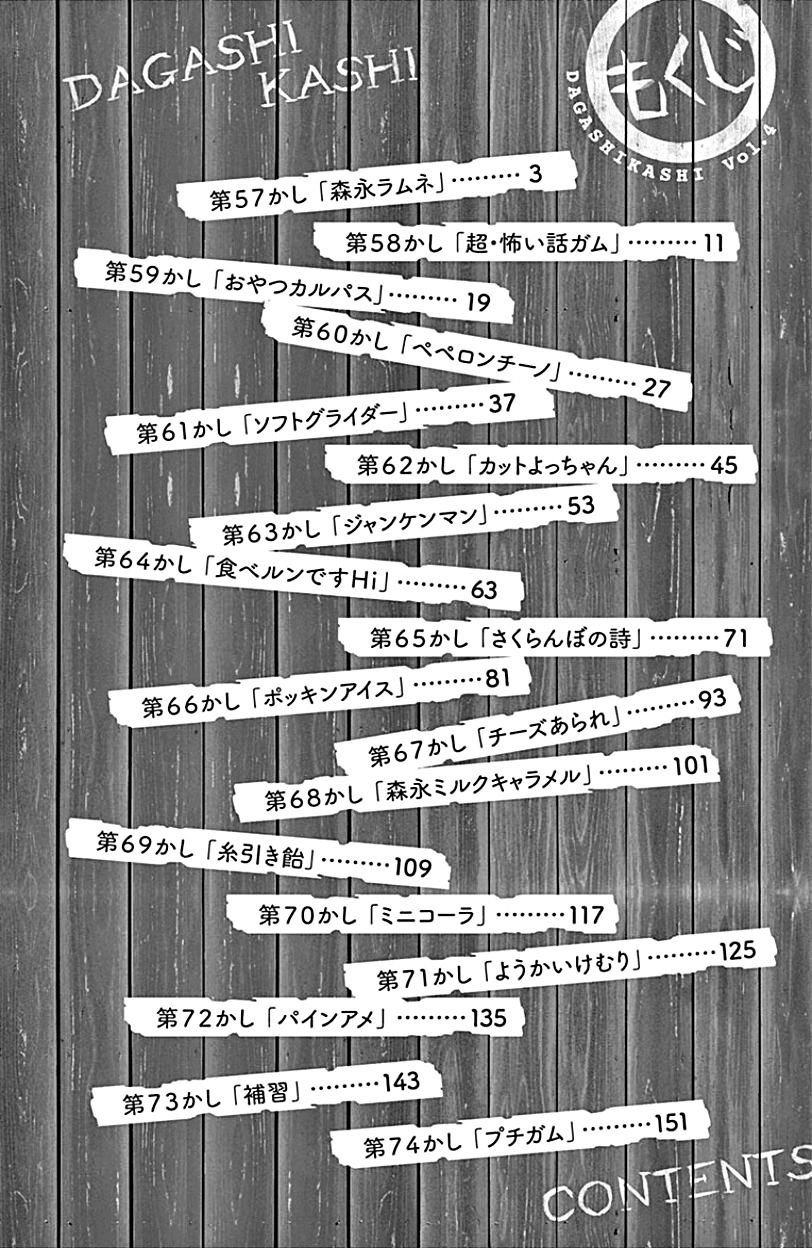 DAGASHI
KASHI
もくじ
DAGASHIKASHI Vol.4
第57かし「森永ラムネ」 ……… 3
第58かし「超・怖い話ガム」 ……… 11
第59かし「おやつカルパス」 ……… 19
第60かし「ペペロンチーノ」 ……… 27
第61かし「ソフトグライダー」 ……… 37
第62かし「カットよっちゃん」 ……… 45
第63かし「ジャンケンマン」 ……… 53
第64かし「食べルンですHi」 ……… 63
第65かし「さくらんぼの詩」 ……… 71
第66かし「ポッキンアイス」 ……… 81
第67かし「チーズあられ」 ……… 93
第68かし「森永ミルクキャラメル」 ……… 101
第69かし「糸引き飴」 ……… 109
第70かし「ミニコーラ」 ……… 117
第71かし「ようかいけむり」 ……… 125
第72かし「パインアメ」 ……… 135
第73かし「補習」 ……… 143
第74かし「プチガム」 ……… 151
CONTENTS